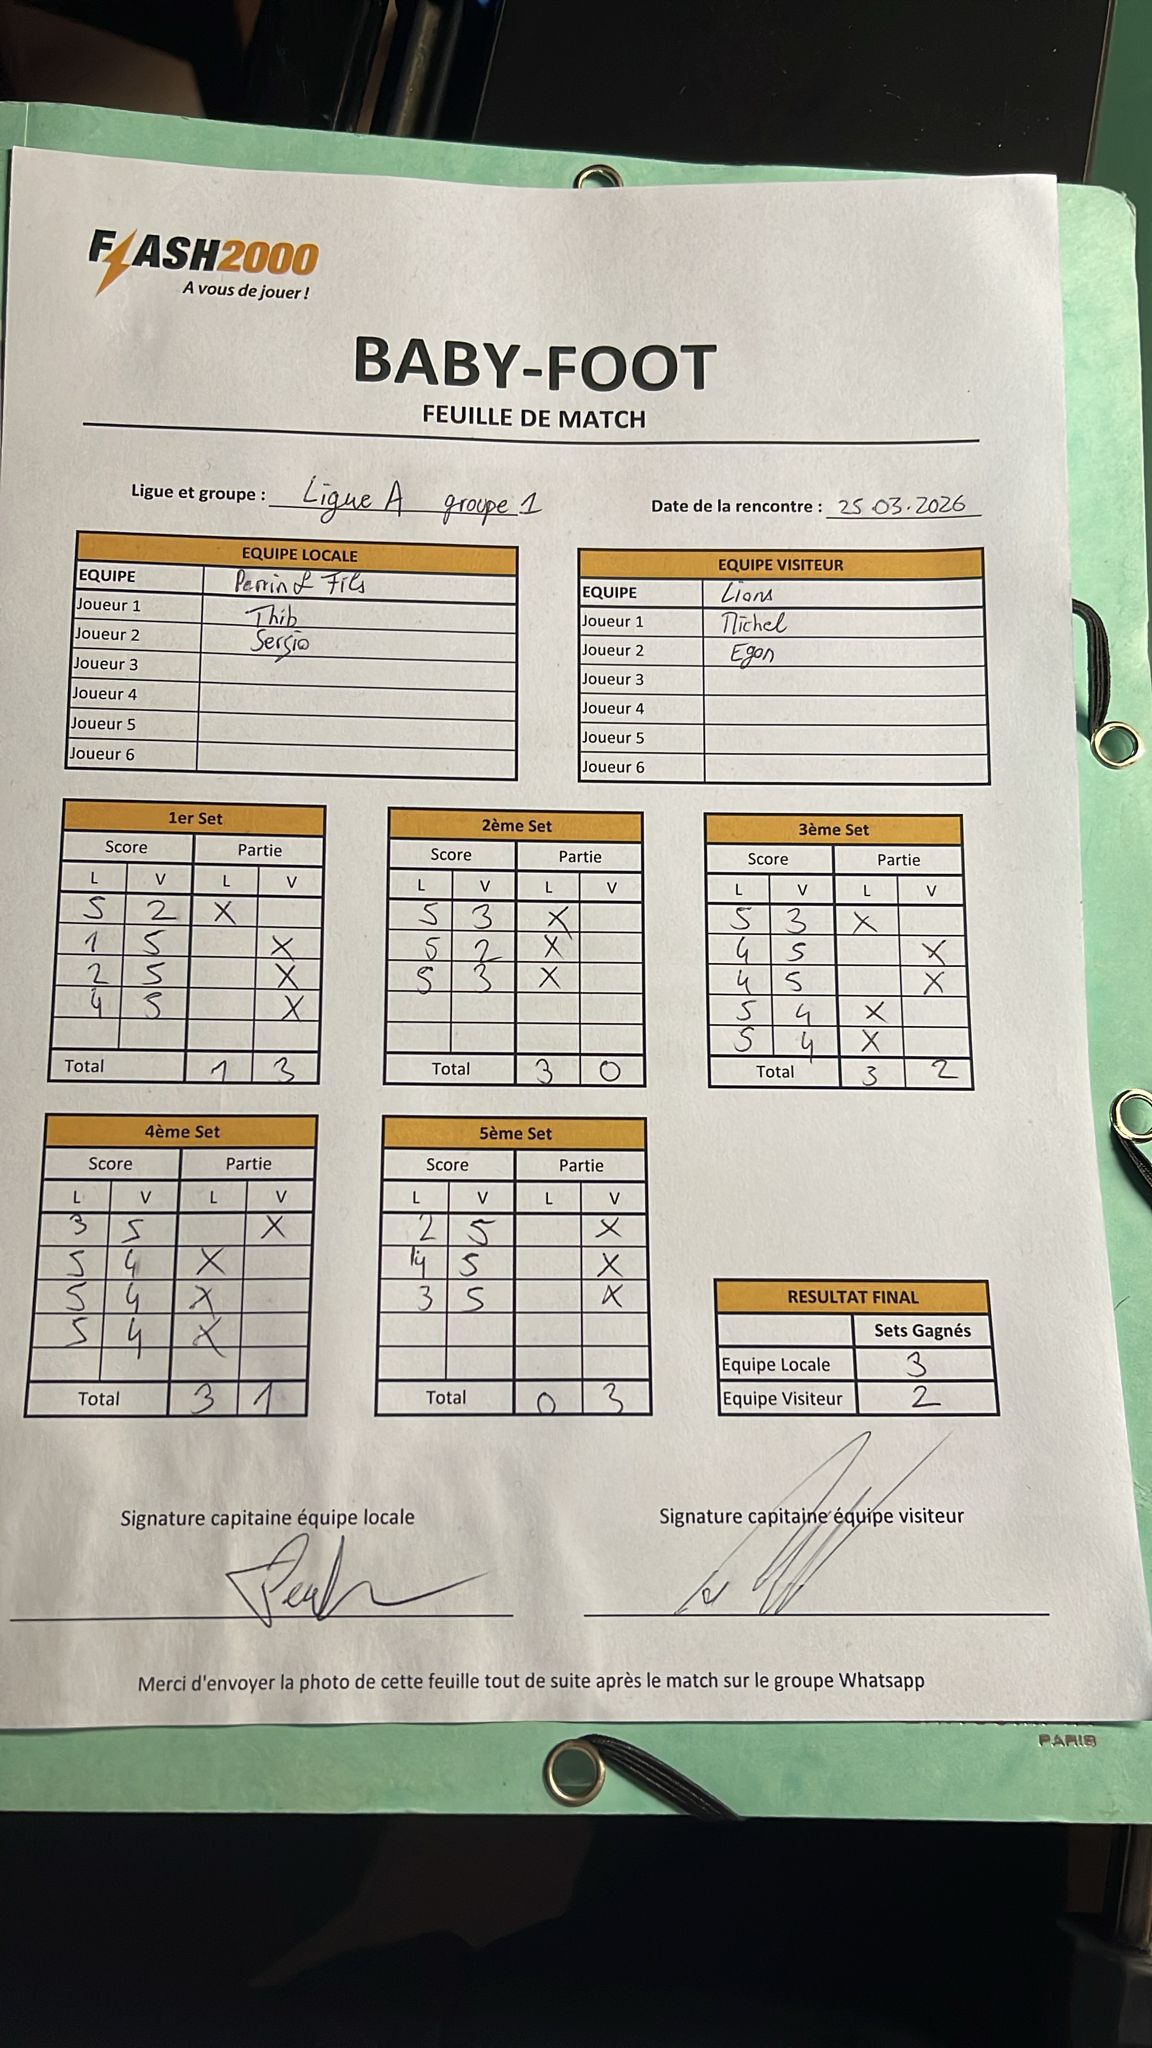 FLASH2000
A vous de jouer !
BABY-FOOT
FEUILLE DE MATCH
Ligue et groupe : Ligue A groupe 1
Date de la rencontre : 25.03.2026
EQUIPE LOCALE
EQUIPE Perrin & Fils
Joueur 1 Thib
Joueur 2 Sergio
Joueur 3
Joueur 4
Joueur 5
Joueur 6
EQUIPE VISITEUR
EQUIPE Lions
Joueur 1 Michel
Joueur 2 Egon
Joueur 3
Joueur 4
Joueur 5
Joueur 6
1er Set
Score Partie
L V L V
5 2 X
1 5 X
2 5 X
4 5 X
Total 1 3
2ème Set
Score Partie
L V L V
5 3 X
5 2 X
5 3 X
Total 3 0
3ème Set
Score Partie
L V L V
5 3 X
4 5 X
4 5 X
5 4 X
5 4 X
Total 3 2
4ème Set
Score Partie
L V L V
3 5 X
5 4 X
5 4 X
5 4 X
Total 3 1
5ème Set
Score Partie
L V L V
2 5 X
4 5 X
3 5 X
Total 0 3
RESULTAT FINAL
Sets Gagnés
Equipe Locale 3
Equipe Visiteur 2
Signature capitaine équipe locale
Signature capitaine équipe visiteur
Merci d'envoyer la photo de cette feuille tout de suite après le match sur le groupe Whatsapp
PARIS